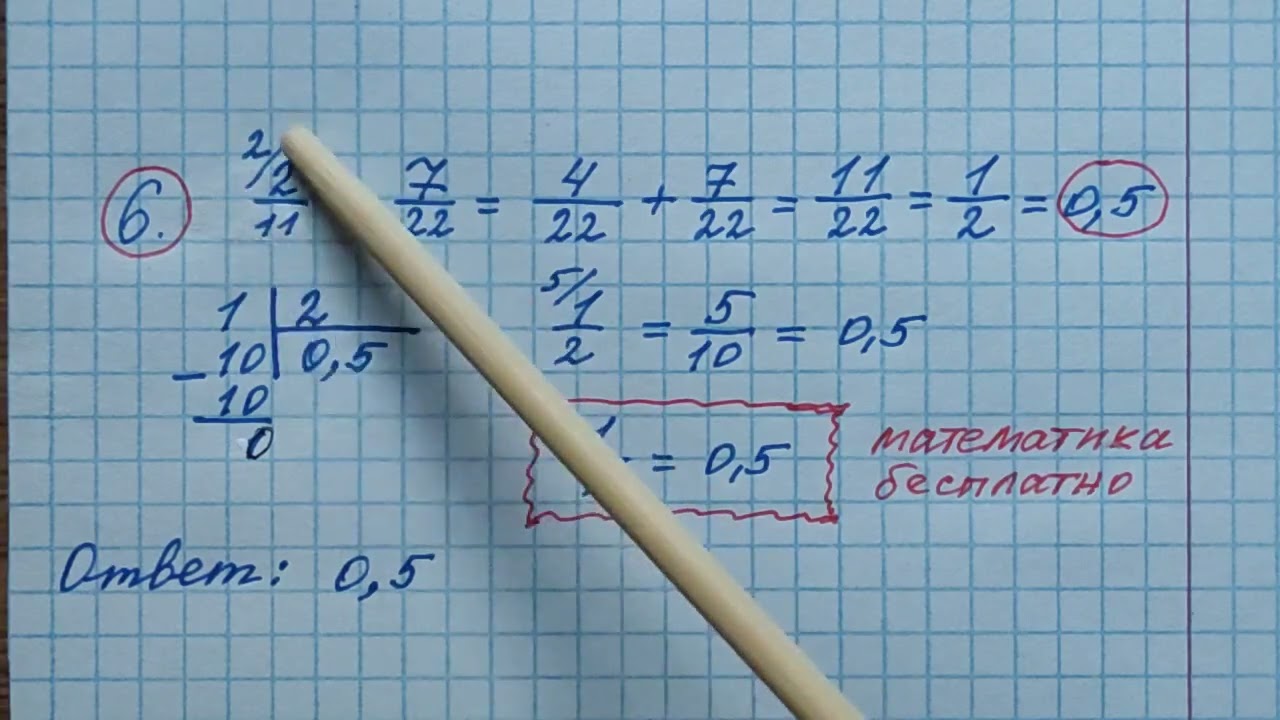 6. 2/ 2/11 7/22 = 4/22 + 7/22 = 11/22 = 1/2 = 0,5
1 | 2
- 10 | 0,5
10
0
5/ 1/2 = 5/10 = 0,5
1 = 0,5
математика
бесплатно
Ответ: 0,5